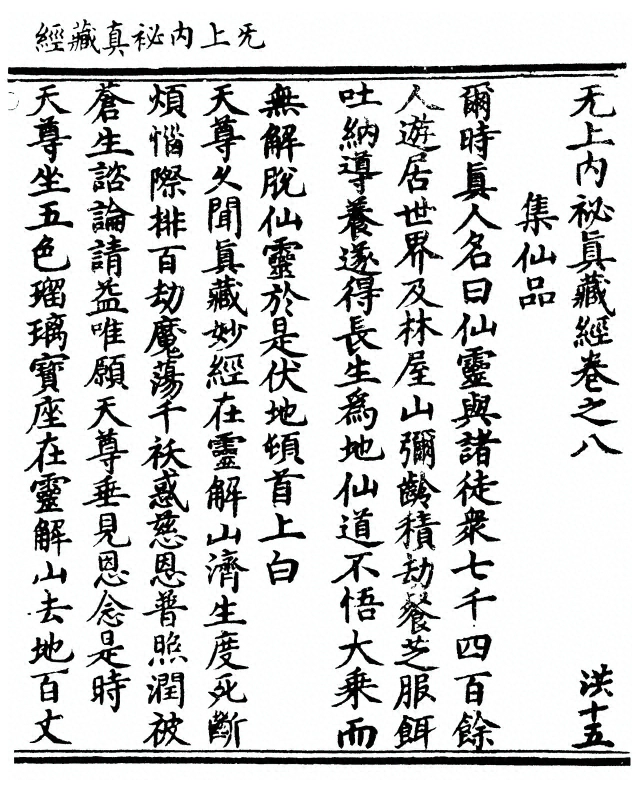 无上内祕真藏經
无上内祕眞藏經卷之八 洪十五
集仙品
爾時眞人名曰仙靈與諸徒衆七千四百餘
人遊居世界及林屋山彌齡積劫餐芝服餌
吐納導養遂得長生爲地仙道不悟大乘而
無解脫仙靈於是伏地頓首上白
天尊久聞眞藏妙經在靈解山濟生度死斷
煩惱際排百劫魔蕩千祅惑慈恩普照潤被
蒼生諮論請益唯願天尊垂見恩念是時
天尊坐五色瑠璃寶座在靈解山去地百丈